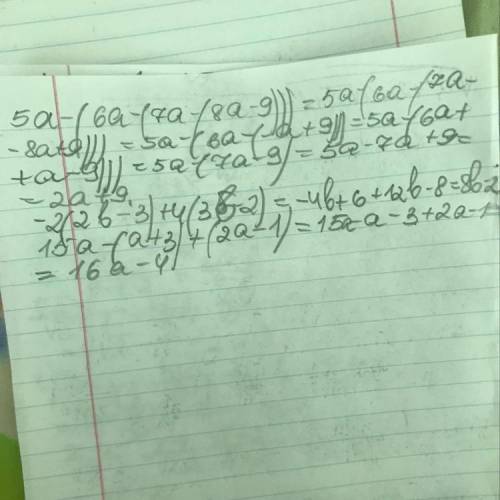 5a-(6a-(7a-(8a-9)))=5a-(6a-(7a-
-8a+9)))=5a-(6a-(-a+9))=5a-(6a+
+a-9)))=5a-(7a-9)=5a-7a+9=
=-2a+9.
-2(2b-3)+4(3b-2)=-4b+6+12b-8=8b-2
15a-(a+3)+(2a-1)=15a-a-3+2a-1=
=16a-4